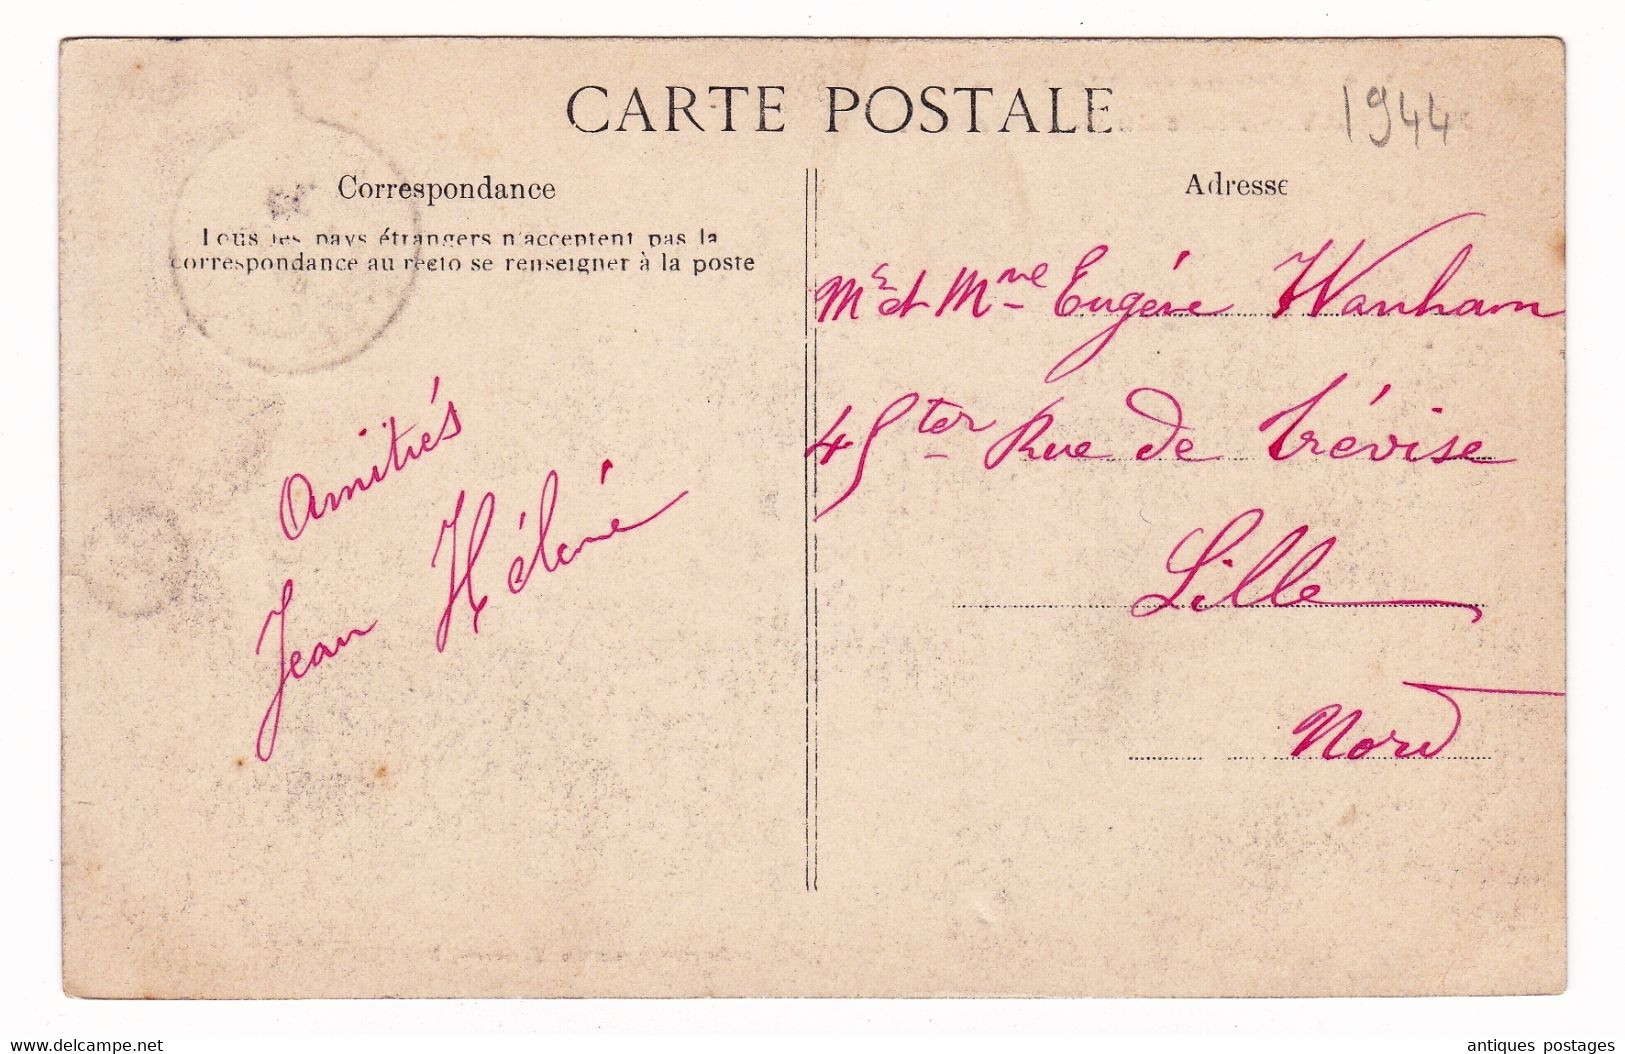 CARTE POSTALE
1944
Correspondance
Tous les pays étrangers n'acceptent pas la
correspondance au recto se renseigner à la poste
Amitiés
Jean Hélène
Adresse
Mr et Mme Eugène Wanham
45 ter Rue de Trévise
Lille
Nord
www.delcampe.net
antiques postages